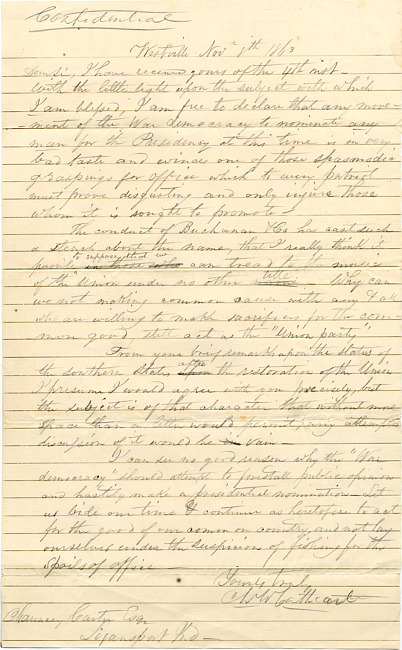 Confidential
Westville Nov. 9th 1863
Dear Sir, I have received yours of the 4th inst.
With the little light upon the subject with which
I am blessed, I am free to declare that any move-
ment of the War democracy to nominate any
man for the Presidency at this time is in very
bad taste and evinces one of those spasmodic
graspings for office which to every patriot
must prove disgusting and only injure those
whom it is sought to promote.
The conduct of Buchanan & Co has cast such
a stench about the name, that I really think it
to suppose that we
can tread to the music
of the Union under no other title. Why can
we not making common cause with any & all
who are willing to make sacrifices for the com-
mon good, still act as the "Union party"
From your brief remarks upon the status of
the southern States after the restoration of the Union
I presume I would agree with you precisely, but
the subject is of that character that without more
space than a letter would permit, any attempted
discussion of it would be vain.
I can see no good reason why the "War
democracy" should attempt to forestall public opinion
and hastily make a presidential nomination. Let
us bide our time & continue as heretofore to act
for the good of our common country, and not lay
ourselves under the suspicion of fishing for the
spoils of office.
Yours truly
C. W. Cathcart
Chauncey Carter Esqr
Logansport Ind